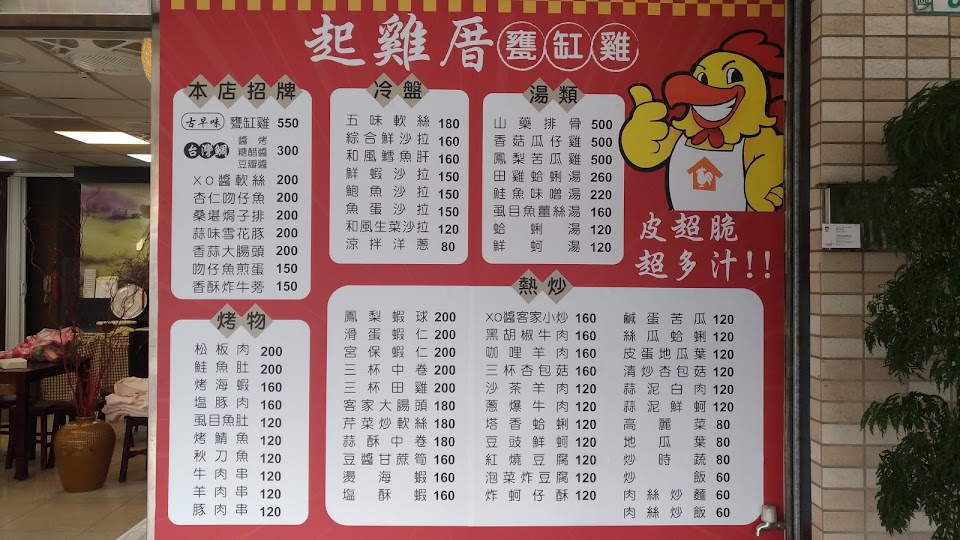 起雞厝 甕缸雞
本店招牌
古早味 甕缸雞 550
台灣鯛 醬烤 糖醋醬 豆瓣醬 300
XO醬軟絲 200
杏仁吻仔魚 200
桑堪焗子排 200
蒜味雪花豚 200
香蒜大腸頭 200
吻仔魚煎蛋 150
香酥炸牛蒡 150
烤物
松板肉 200
鮭魚肚 200
烤海蝦 160
塩豚肉 160
虱目魚肚 120
烤鯖魚 120
秋刀魚 120
牛肉串 120
羊肉串 120
豚肉串 120
冷盤
五味軟絲 180
綜合鮮沙拉 160
和風鱈魚肝 160
鮮蝦沙拉 150
鮑魚沙拉 150
魚蛋沙拉 150
和風生菜沙拉 120
涼拌洋蔥 80
湯類
山藥排骨 500
香菇瓜仔雞 500
鳳梨苦瓜雞 500
田雞蛤蜊湯 260
鮭魚味噌湯 220
虱目魚薑絲湯 160
蛤蜊湯 120
鮮蚵湯 120
皮超脆
超多汁!!
熱炒
鳳梨蝦球 200
滑蛋蝦仁 200
宮保蝦仁 200
三杯中卷 200
三杯田雞 200
客家大腸頭 180
芹菜炒軟絲 180
蒜酥中卷 180
豆醬甘蔗筍 160
燙海蝦 160
塩酥蝦 160
XO醬客家小炒 160
黑胡椒牛肉 160
咖哩羊肉 160
三杯杏包菇 160
沙茶羊肉 120
蔥爆牛肉 120
塔香蛤蜊 120
豆豉鮮蚵 120
紅燒豆腐 120
泡菜炸豆腐 120
炸蚵仔酥 120
鹹蛋苦瓜 120
絲瓜蛤蜊 120
皮蛋地瓜葉 120
清炒杏包菇 120
蒜泥白肉 120
蒜泥鮮蚵 120
高麗菜 80
地瓜葉 80
炒時蔬 80
炒飯 60
肉絲炒麵 60
肉絲炒飯 60